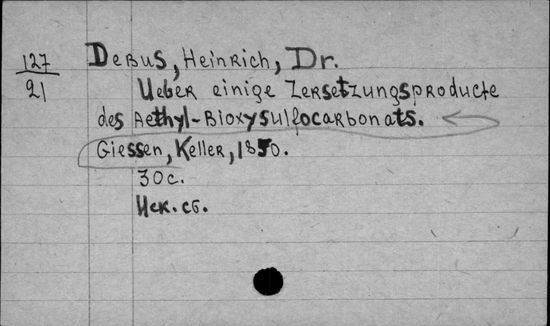 127
21
Debus, Heinrich, Dr.
Ueber einige Zersetzungsproducte
des Aethyl-Bioxysulfocarbonats.
Giessen, Keller, 1850.
30 c.
Иск. сб.